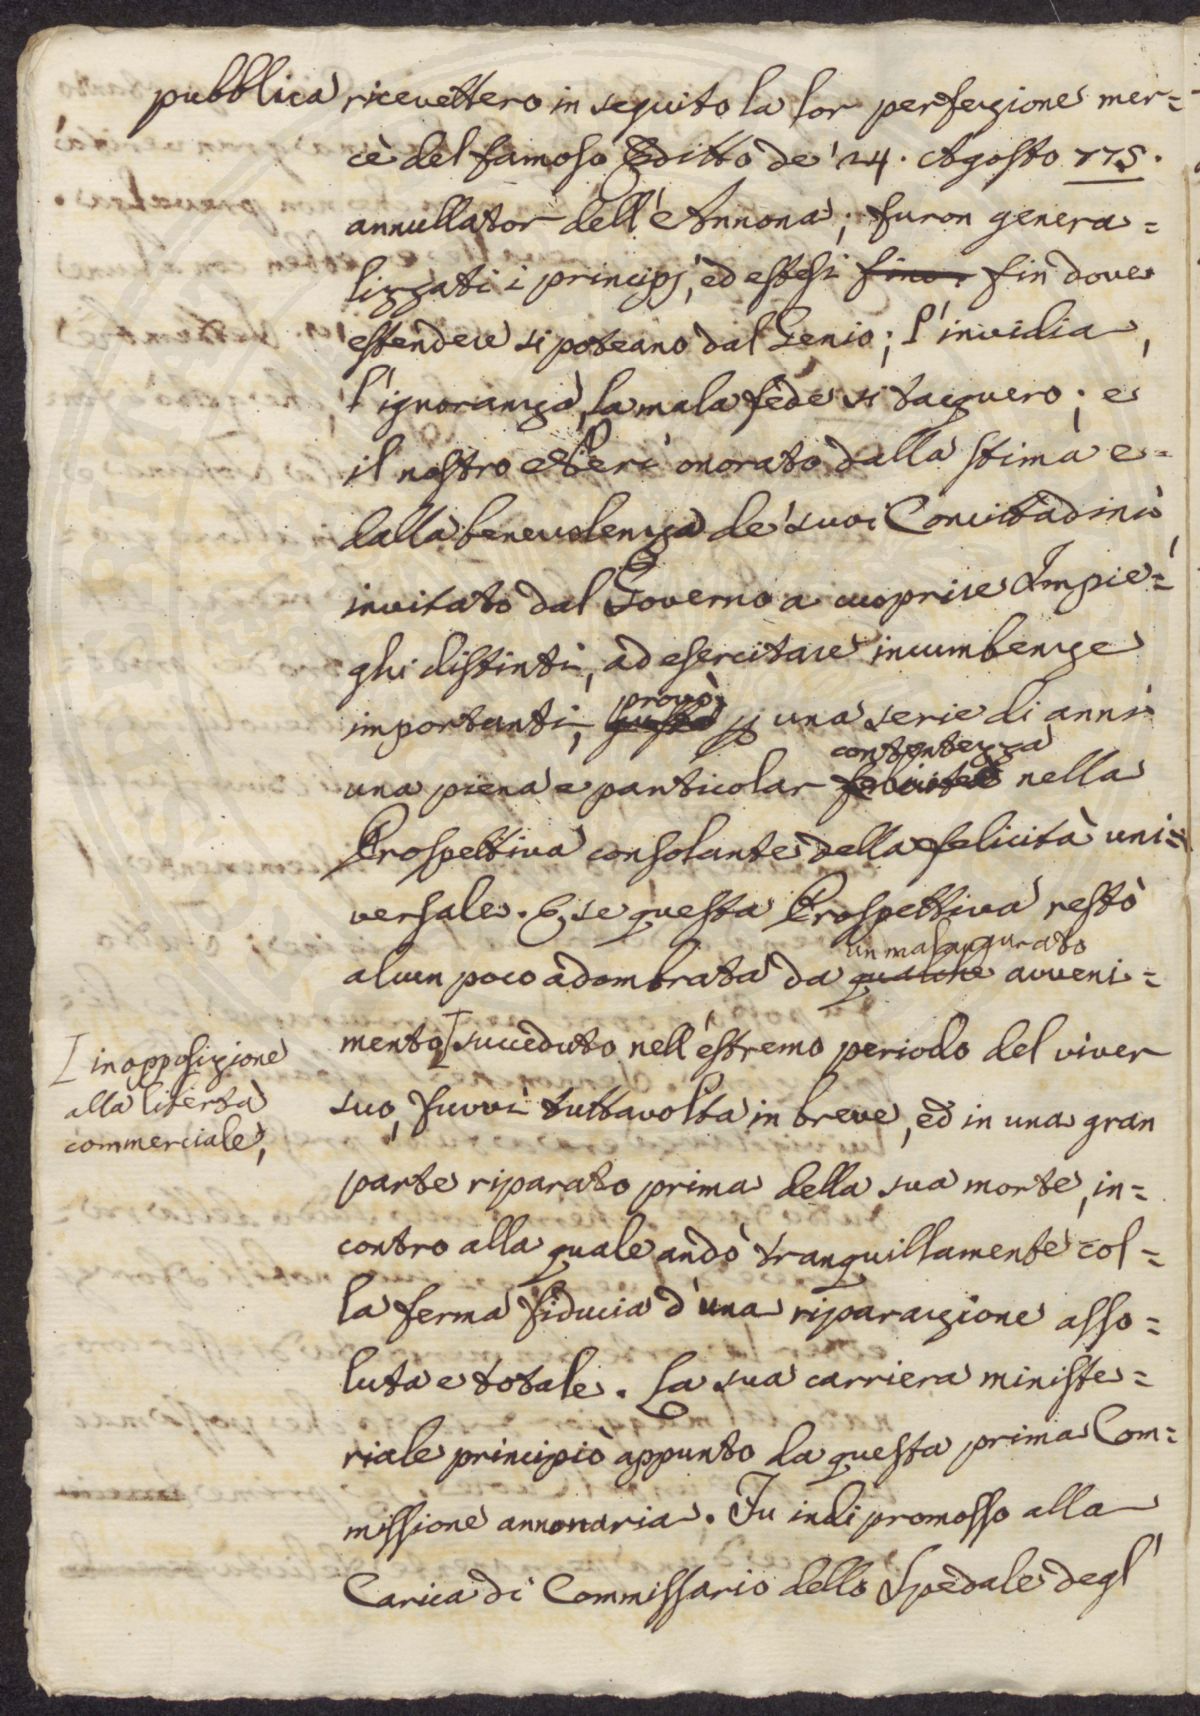 pubblica ricevettero in seguito la lor perfezione mer=
cè del famoso Editto de' 24. Agosto 775.
annullator dell'Annona; furon genera=
lizzati i principj, ed estesi fino fin dove
estendere si poteano dal Genio; l'invidia,
l'ignoranza, la mala fede si tacquero; e
il nostro Neri onorato dalla stima e
dalla benevolenza de' suoi Concittadini
invitato dal Governo a cuoprire Impie=
ghi distinti, ad esercitare incumbenze
provò
importanti, p una serie di anni
contentezza
una piena e particolar felicità nella
Prospettiva consolante della felicità uni=
versale. E se questa Prospettiva restò
un malaugurato
alcun poco adombrata da qualche avveni=
mento [ succeduto nell'estremo periodo del viver
[ in opposizione
alla libertà
commerciale,
suo, fuvvi tuttavolta in breve, ed in una gran
parte riparato prima della sua morte, in=
contro alla quale andò tranquillamente col=
la ferma fiducia d'una riparazione asso=
luta e totale. La sua carriera ministe=
riale principiò appunto da questa prima Com=
missione annonaria. Fu indi promosso alla
Carica di Commissario dello Spedale degl'